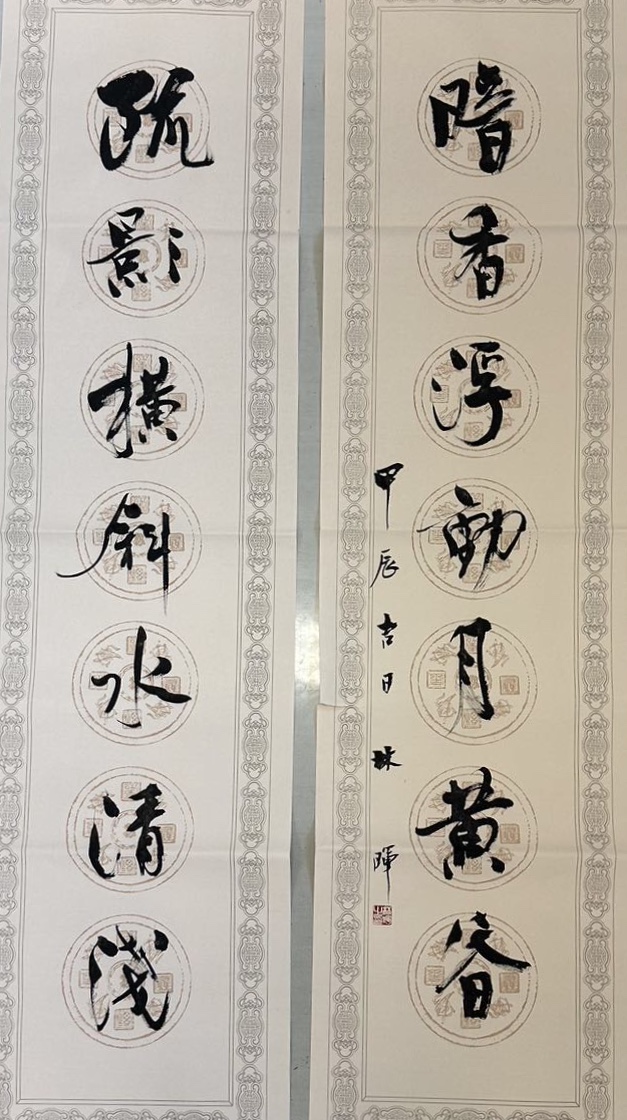 疏影橫斜水清淺
暗香浮動月黃昏
甲辰吉日 暉